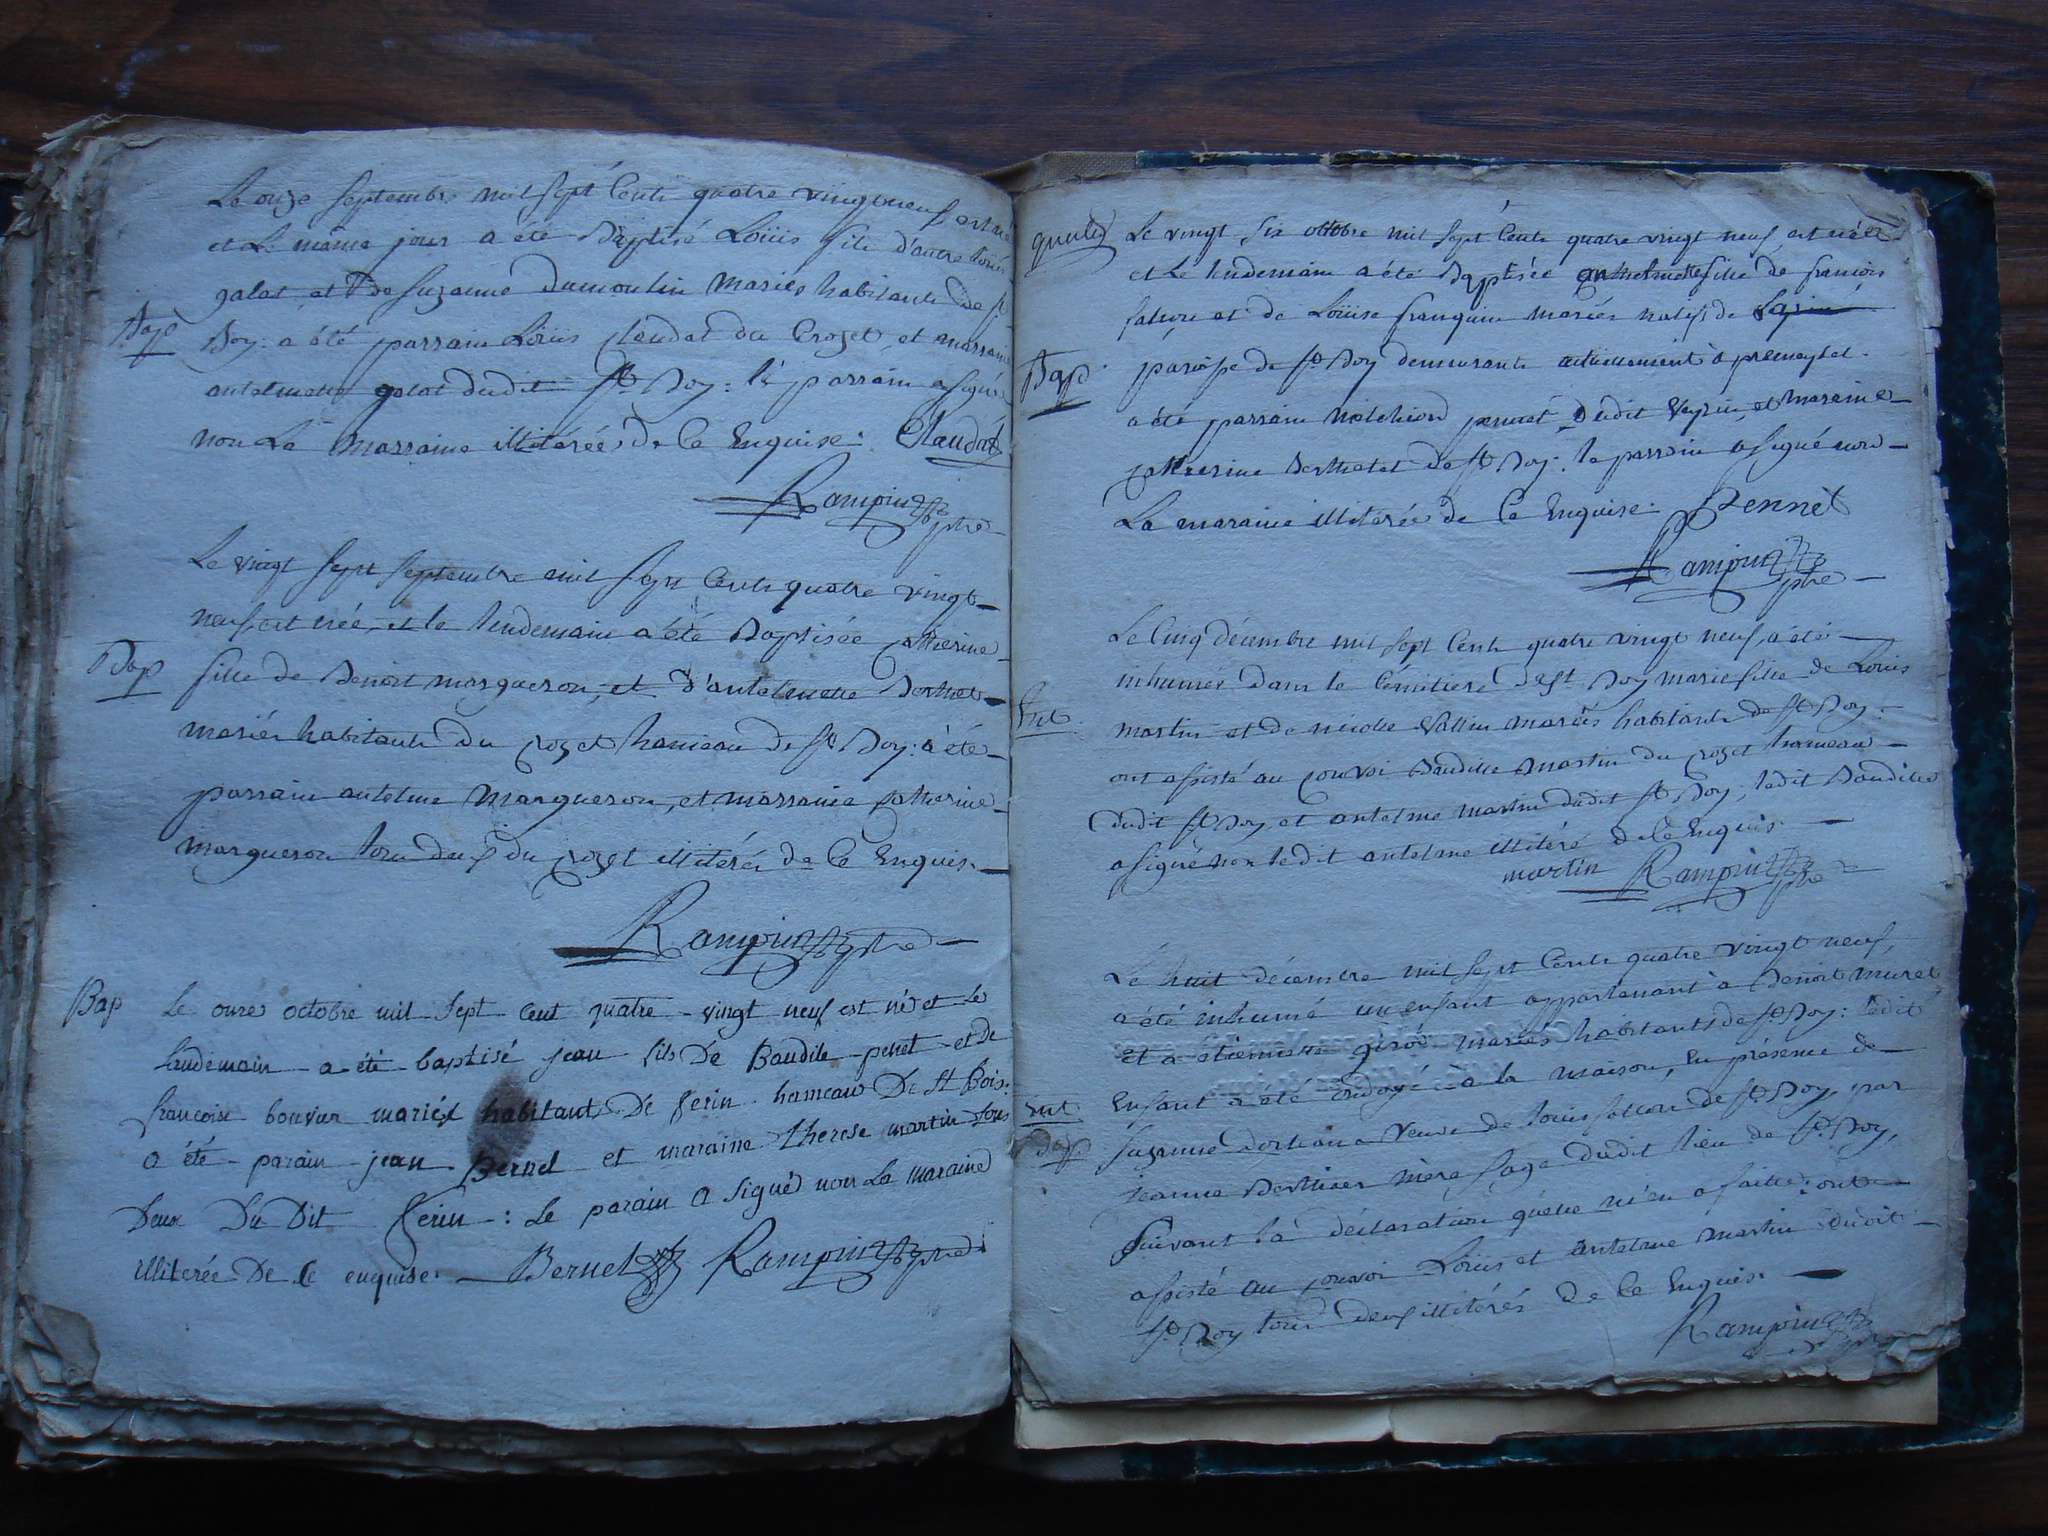 Le onze septembre mil sept Cents quatre vingt neuf est né
et Le même jour a été Baptisé Loüis fils d'autre Loüis
galat, et de Suzanne dumoulin mariés habitants de St
Bap
Boy: a été parrain Loüis Claudat du Crozet, et marraine
antelmette galat dudit St Boy: le parrain a signé
non La marraine illiterée de Ce Enquise: Claudat
Rampin ptre
Le vingt sept septembre mil sept Cents quatre vingt
neuf est née, et le lendemain a été Baptisée catherine
Bap
fille de Benoit margueron, et d'antelmette Berthet
mariés habitants du crozet hameau de St Boy: a été
parrain antelme Margueron, et marraine catherine
margueron tous deux du crozet illiterés de Ce Enquis.
Rampin ptre
Bap
Le onze octobre mil sept cent quatre vingt neuf est né et Le
landemain a été baptisé jean fils De Baudile penet et de
francoise bouvier mariés habitant De Ferin hameau De St Bois.
a été parain jean Bernel et maraine therese martin tous
Deux Du Dit Ferin: Le parain a signé non La maraine
illiterée De Ce enquise. Bernel Rampin ptre
Le vingt six octobre mil sept Cents quatre vingt neuf, est née
et Le lendemain a été Baptisée antelmette fille de francois
falcoz et de Loüise franquin mariés natifs de
Bap
paroisse de St Boy demeurants actuellement à premeyzel.
a été parrain melchiord pennet dudit Veyrin, et maraine
catherine Berthelet de St Boy: le parrain a signé non
La maraine illiterée de Ce Enquise. Pennet
Rampin ptre
Le Cinq décembre mil sept Cents quatre vingt neuf, a été
inhumée dans le Cemitiere de St Boy marie fille de Loüis
Ent
martin et de nicolle Vallin mariés habitants de St Boy.
ont assisté au convoi Baudille martin du crozet hameau
dudit St Boy, et antelme martin dudit St Boy; ledit Baudille
a signé non ledit antelme illitéré de Ce Enquis.
martin Rampin ptre
Le huit décembre mil sept Cents quatre vingt neuf,
a été inhumé un enfant appartenant à Benoit muret
et a etiennette girod mariés habitants de St Boy: ledit
Ent
Enfant a été ondoyé à la maison, En présence de
Bap
suzanne dortiana veuve de Loüis falcon de St Boy par
jeanne Berthier mère sage dudit lieu de St Boy,
suivant la déclaration quelle m'en a faitte: ont
assisté au convoi Loüis et Antelme martin dudit
St Boy tous deux illitérés de Ce Enquis.
Rampin ptre